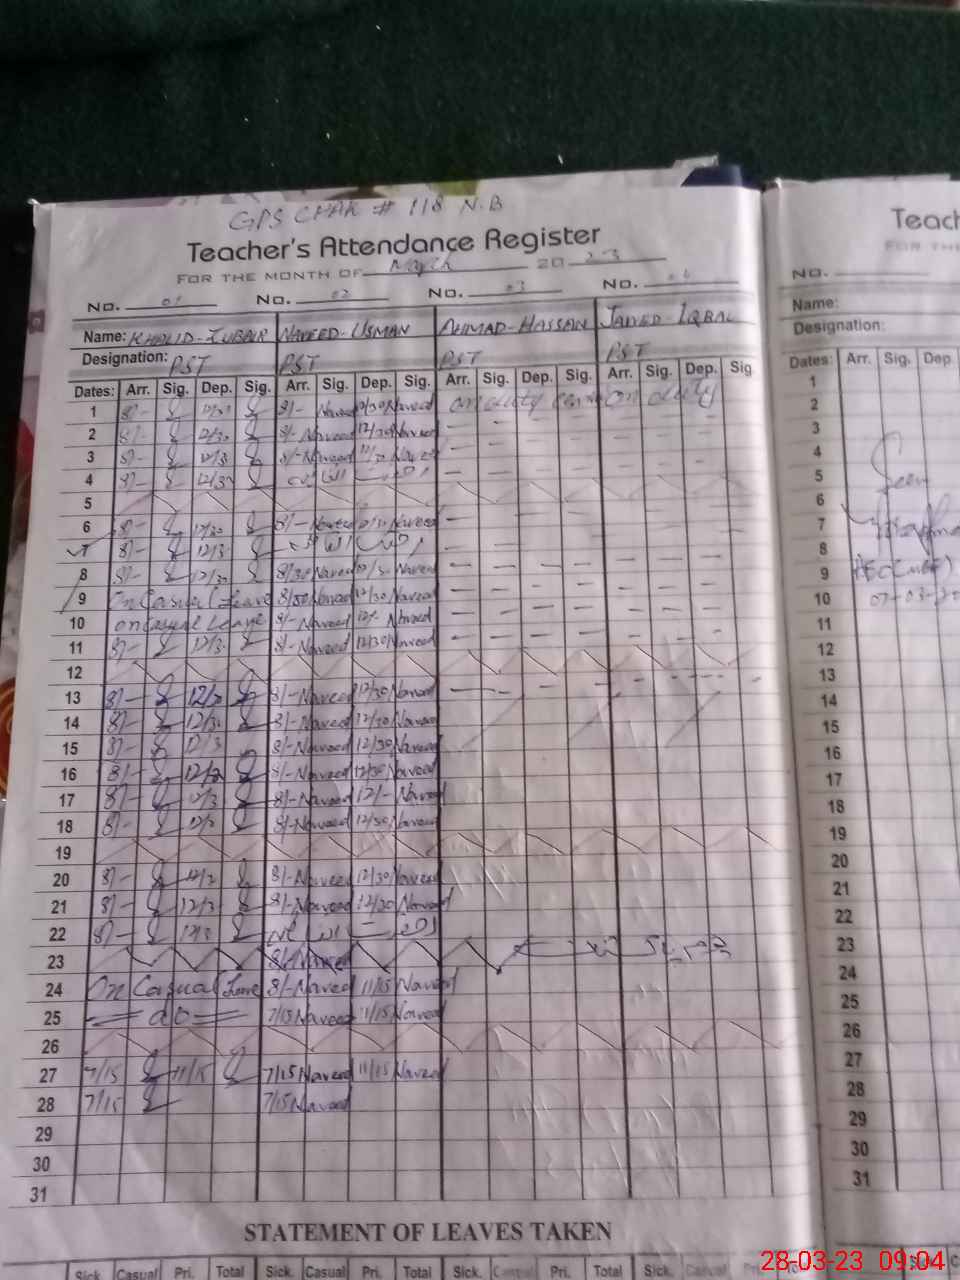 GPS CHAK # 118 N.B
Teacher's Attendance Register
FOR THE MONTH OF March 20 23
No. 01 No. 02 No. 03 No. 04
Name: KHALID-ZUBAIR NAVEED-USMAN AHMAD-HASSAN JAVED-IQBAL
Designation: PST PST PST PST
Dates: Arr. Sig. Dep. Sig. Arr. Sig. Dep. Sig. Arr. Sig. Dep. Sig. Arr. Sig. Dep. Sig
1 8/- 12/30 8/- Naveed 12/30 Naveed on duty on duty
2 8/- 12/30 8/- Naveed 12/30 Naveed
3 8/- 12/3 8/- Naveed 12/30 Naveed
4 8/- 12/30
5
6 8/- 12/30 8/- Naveed 12/30 Naveed
8/- 12/3
8 8/- 12/30 8/30 Naveed 12/30 Naveed
9 On Casual Leave 8/30 Naveed 12/30 Naveed
10 on casual Leave 8/- Naveed 12/- Naveed
11 8/- 12/3 8/- Naveed 12/30 Naveed
12
13 8/- 12/30 8/- Naveed 12/30 Naveed
14 8/- 12/30 8/- Naveed 12/30 Naveed
15 8/- 12/3 8/- Naveed 12/30 Naveed
16 8/- 12/3 8/- Naveed 12/30 Naveed
17 8/- 12/3 8/- Naveed 12/- Naveed
18 8/- 12/3 8/- Naveed 12/30 Naveed
19
20 8/- 12/3 8/- Naveed 12/30 Naveed
21 8/- 12/3 8/- Naveed 12/30 Naveed
22 8/- 12/3
23 8/- Naveed
24 On Casual Leave 8/- Naveed 11/15 Naveed
25 = do = 7/15 Naveed 11/15 Naveed
26
27 7/15 11/15 7/15 Naveed 11/15 Naveed
28 7/15 7/15 Naveed
29
30
31
STATEMENT OF LEAVES TAKEN
Sick. Casual Pri. Total Sick. Casual Pri. Total Sick. Casual Pri. Total Sick. Casual Pri. Total
Teach
FOR THE
NO.
Name:
Designation:
Dates: Arr. Sig. Dep
1
2
3
4
5 Seen
6
7
8
9
10 07-03-20
11
12
13
14
15
16
17
18
19
20
21
22
23
24
25
26
27
28
29
30
31
28-03-23 09:04